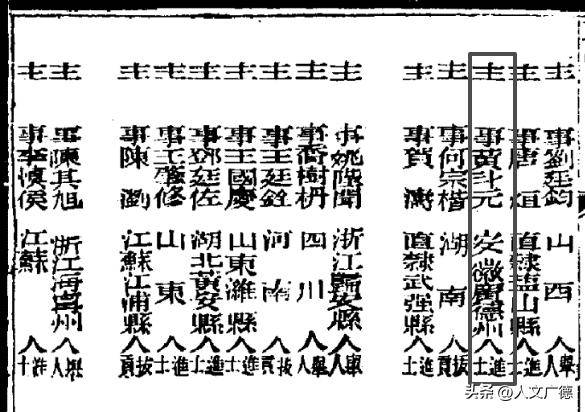 主事劉廷鈞山西人舉人
主事唐烜直隸塩山縣人進士
主事黃計元安徽廣德州人進士
主事何宗楷湖南人拔貢
主事賀濤直隸武强縣人進士
主事姚聞浙江歸安縣人舉人
主事喬樹枬四川人舉人
主事王廷銓河南人拔貢
主事王國慶山東濰縣人進士
主事鄧廷佐湖北黃安縣人進士
主事王肇修山東人進士
主事陳瀏江蘇江浦縣人拔貢
主事陳其旭浙江海寧州人舉人
主事李慎侯江蘇人進士
头条 @人文广德